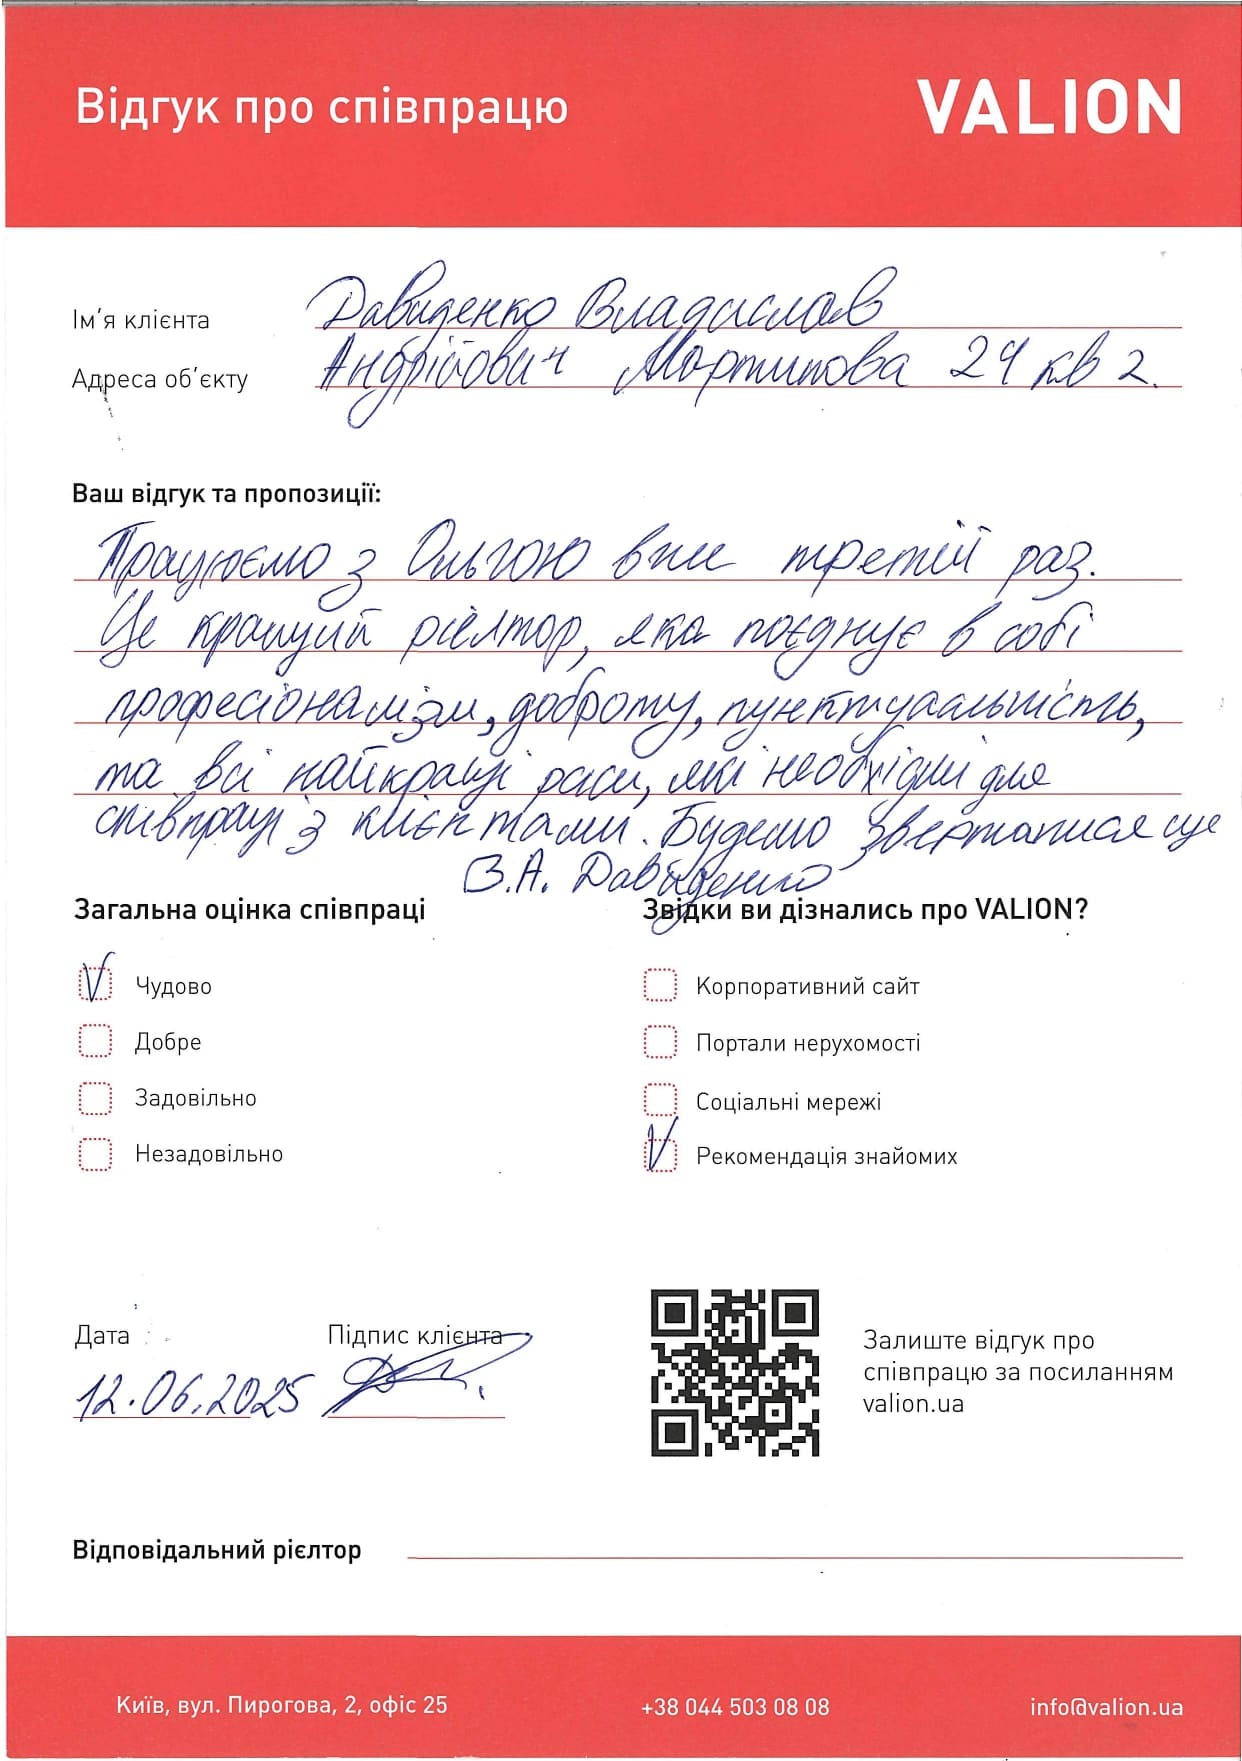 Відгук про співпрацю
VALION
Ім'я клієнта Давиденко Владислав
Адреса об'єкту Андрійович Мартинова 24 кв 2.
Ваш відгук та пропозиції:
Працюємо з Ольгою вже третій раз.
Це кращий рієлтор, яка поєднує в собі
професіоналізм, доброту, пунктуальність,
та всі найкращі риси, які необхідні для
співпраці з клієнтами. Будемо звертатися ще
В.А. Давиденко
Загальна оцінка співпраці
Звідки ви дізнались про VALION?
V Чудово
Корпоративний сайт
Добре
Портали нерухомості
Задовільно
Соціальні мережі
Незадовільно
V Рекомендація знайомих
Дата
Підпис клієнта
12.06.2025
Залиште відгук про
співпрацю за посиланням
valion.ua
Відповідальний рієлтор
Київ, вул. Пирогова, 2, офіс 25
+38 044 503 08 08
info@valion.ua